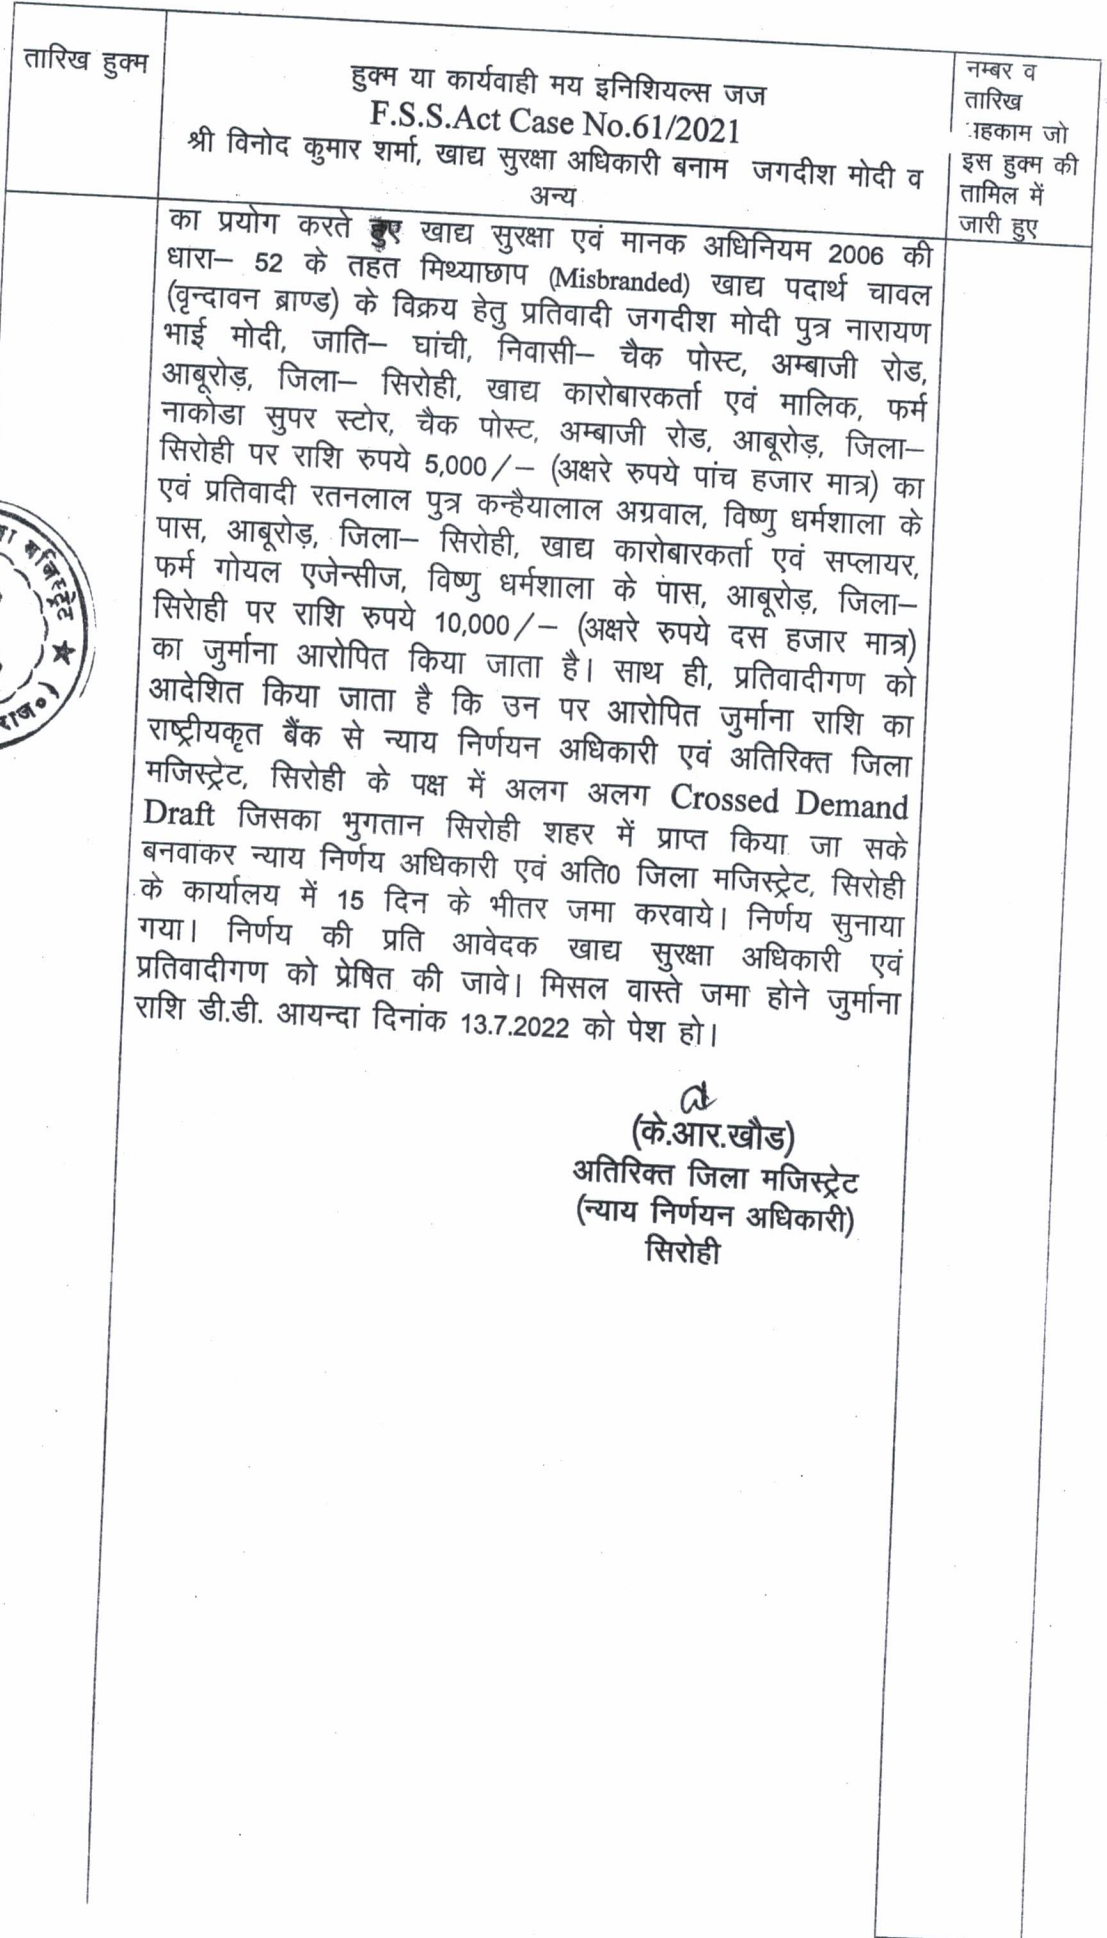 तारिख हुक्म
हुक्म या कार्यवाही मय इनिशियल्स जज
F.S.S.Act Case No.61/2021
श्री विनोद कुमार शर्मा, खाद्य सुरक्षा अधिकारी बनाम जगदीश मोदी व
अन्य
नम्बर व
तारिख
अहकाम जो
इस हुक्म की
तामिल में
जारी हुए
का प्रयोग करते हुए खाद्य सुरक्षा एवं मानक अधिनियम 2006 की
धारा– 52 के तहत मिथ्याछाप (Misbranded) खाद्य पदार्थ चावल
(वृन्दावन ब्राण्ड) के विक्रय हेतु प्रतिवादी जगदीश मोदी पुत्र नारायण
भाई मोदी, जाति– घांची, निवासी– चैक पोस्ट, अम्बाजी रोड,
आबूरोड़, जिला– सिरोही, खाद्य कारोबारकर्ता एवं मालिक, फर्म
नाकोडा सुपर स्टोर, चैक पोस्ट, अम्बाजी रोड, आबूरोड़, जिला–
सिरोही पर राशि रुपये 5,000/– (अक्षरे रुपये पांच हजार मात्र) का
एवं प्रतिवादी रतनलाल पुत्र कन्हैयालाल अग्रवाल, विष्णु धर्मशाला के
पास, आबूरोड़, जिला– सिरोही, खाद्य कारोबारकर्ता एवं सप्लायर,
फर्म गोयल एजेन्सीज, विष्णु धर्मशाला के पास, आबूरोड़, जिला–
सिरोही पर राशि रुपये 10,000/– (अक्षरे रुपये दस हजार मात्र)
का जुर्माना आरोपित किया जाता है। साथ ही, प्रतिवादीगण को
आदेशित किया जाता है कि उन पर आरोपित जुर्माना राशि का
राष्ट्रीयकृत बैंक से न्याय निर्णयन अधिकारी एवं अतिरिक्त जिला
मजिस्ट्रेट, सिरोही के पक्ष में अलग अलग Crossed Demand
Draft जिसका भुगतान सिरोही शहर में प्राप्त किया जा सके
बनवाकर न्याय निर्णय अधिकारी एवं अति0 जिला मजिस्ट्रेट, सिरोही
के कार्यालय में 15 दिन के भीतर जमा करवाये। निर्णय सुनाया
गया। निर्णय की प्रति आवेदक खाद्य सुरक्षा अधिकारी एवं
प्रतिवादीगण को प्रेषित की जावे। मिसल वास्ते जमा होने जुर्माना
राशि डी.डी. आयन्दा दिनांक 13.7.2022 को पेश हो।
(के.आर.खौड)
अतिरिक्त जिला मजिस्ट्रेट
(न्याय निर्णयन अधिकारी)
सिरोही
मजिस्ट्रेट ★
(राज०)